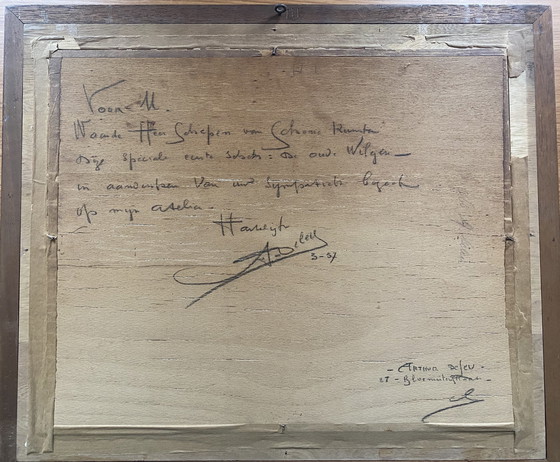 Voor M.
Waarde Heer Schepen van Schoone Kunsten
Deze speciale eerste schets: De oude Wilgen—
in aandenken Van uw Sympathiek bezoek
op mijn atelier.
Hartelijk
A Deleu
3-37
- Arthur Deleu -
27 -